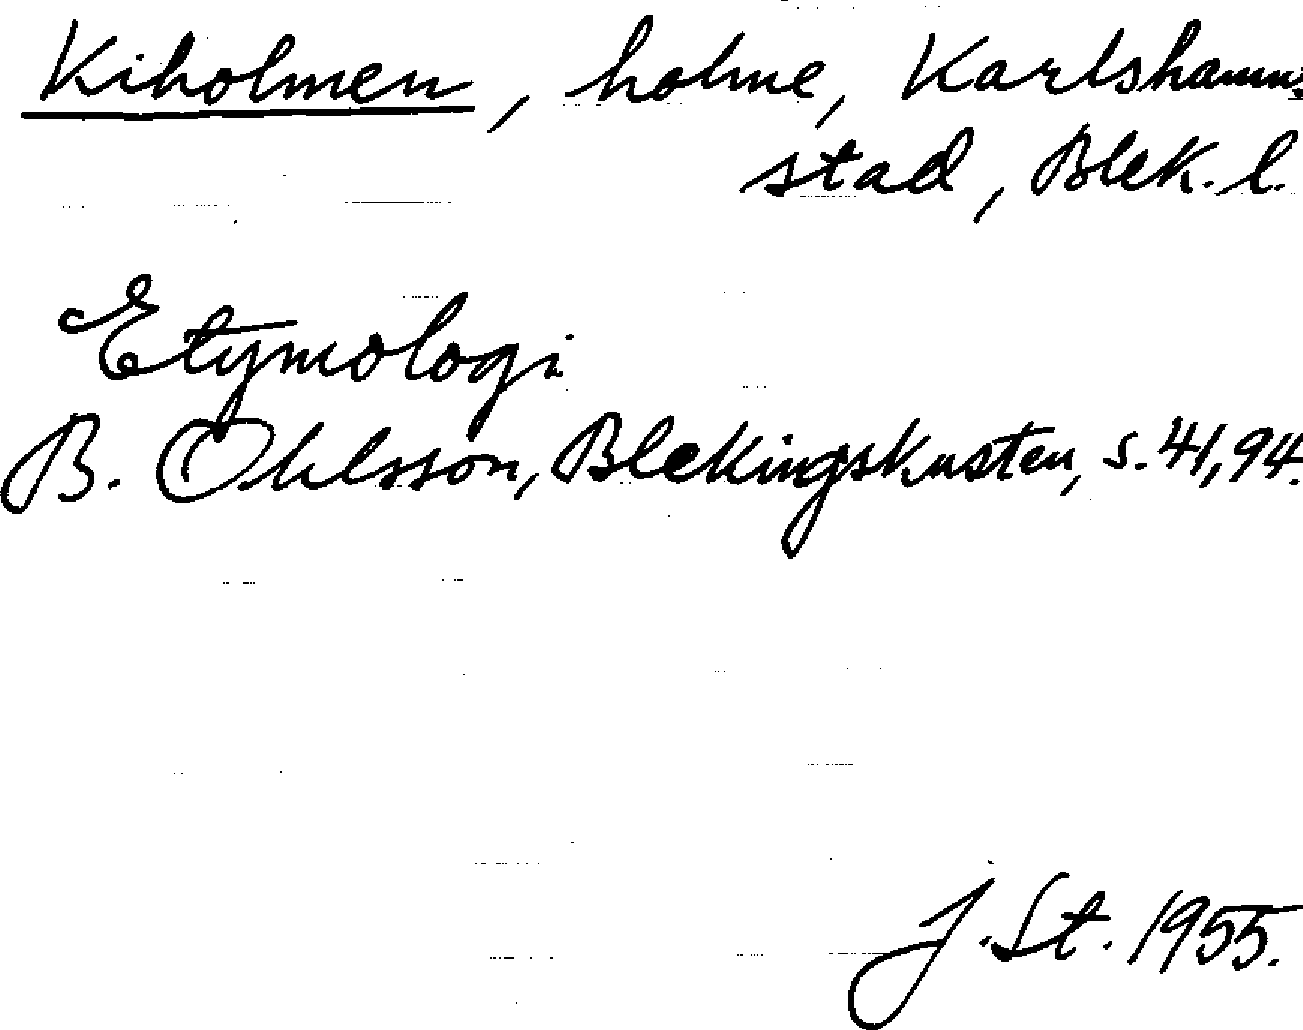 Kiholmen, holme, Karlshamns
stad, Blek. l.
Etymologi
B. Ohlsson, Blekingskusten, s. 41, 94.
J. St. 1955.